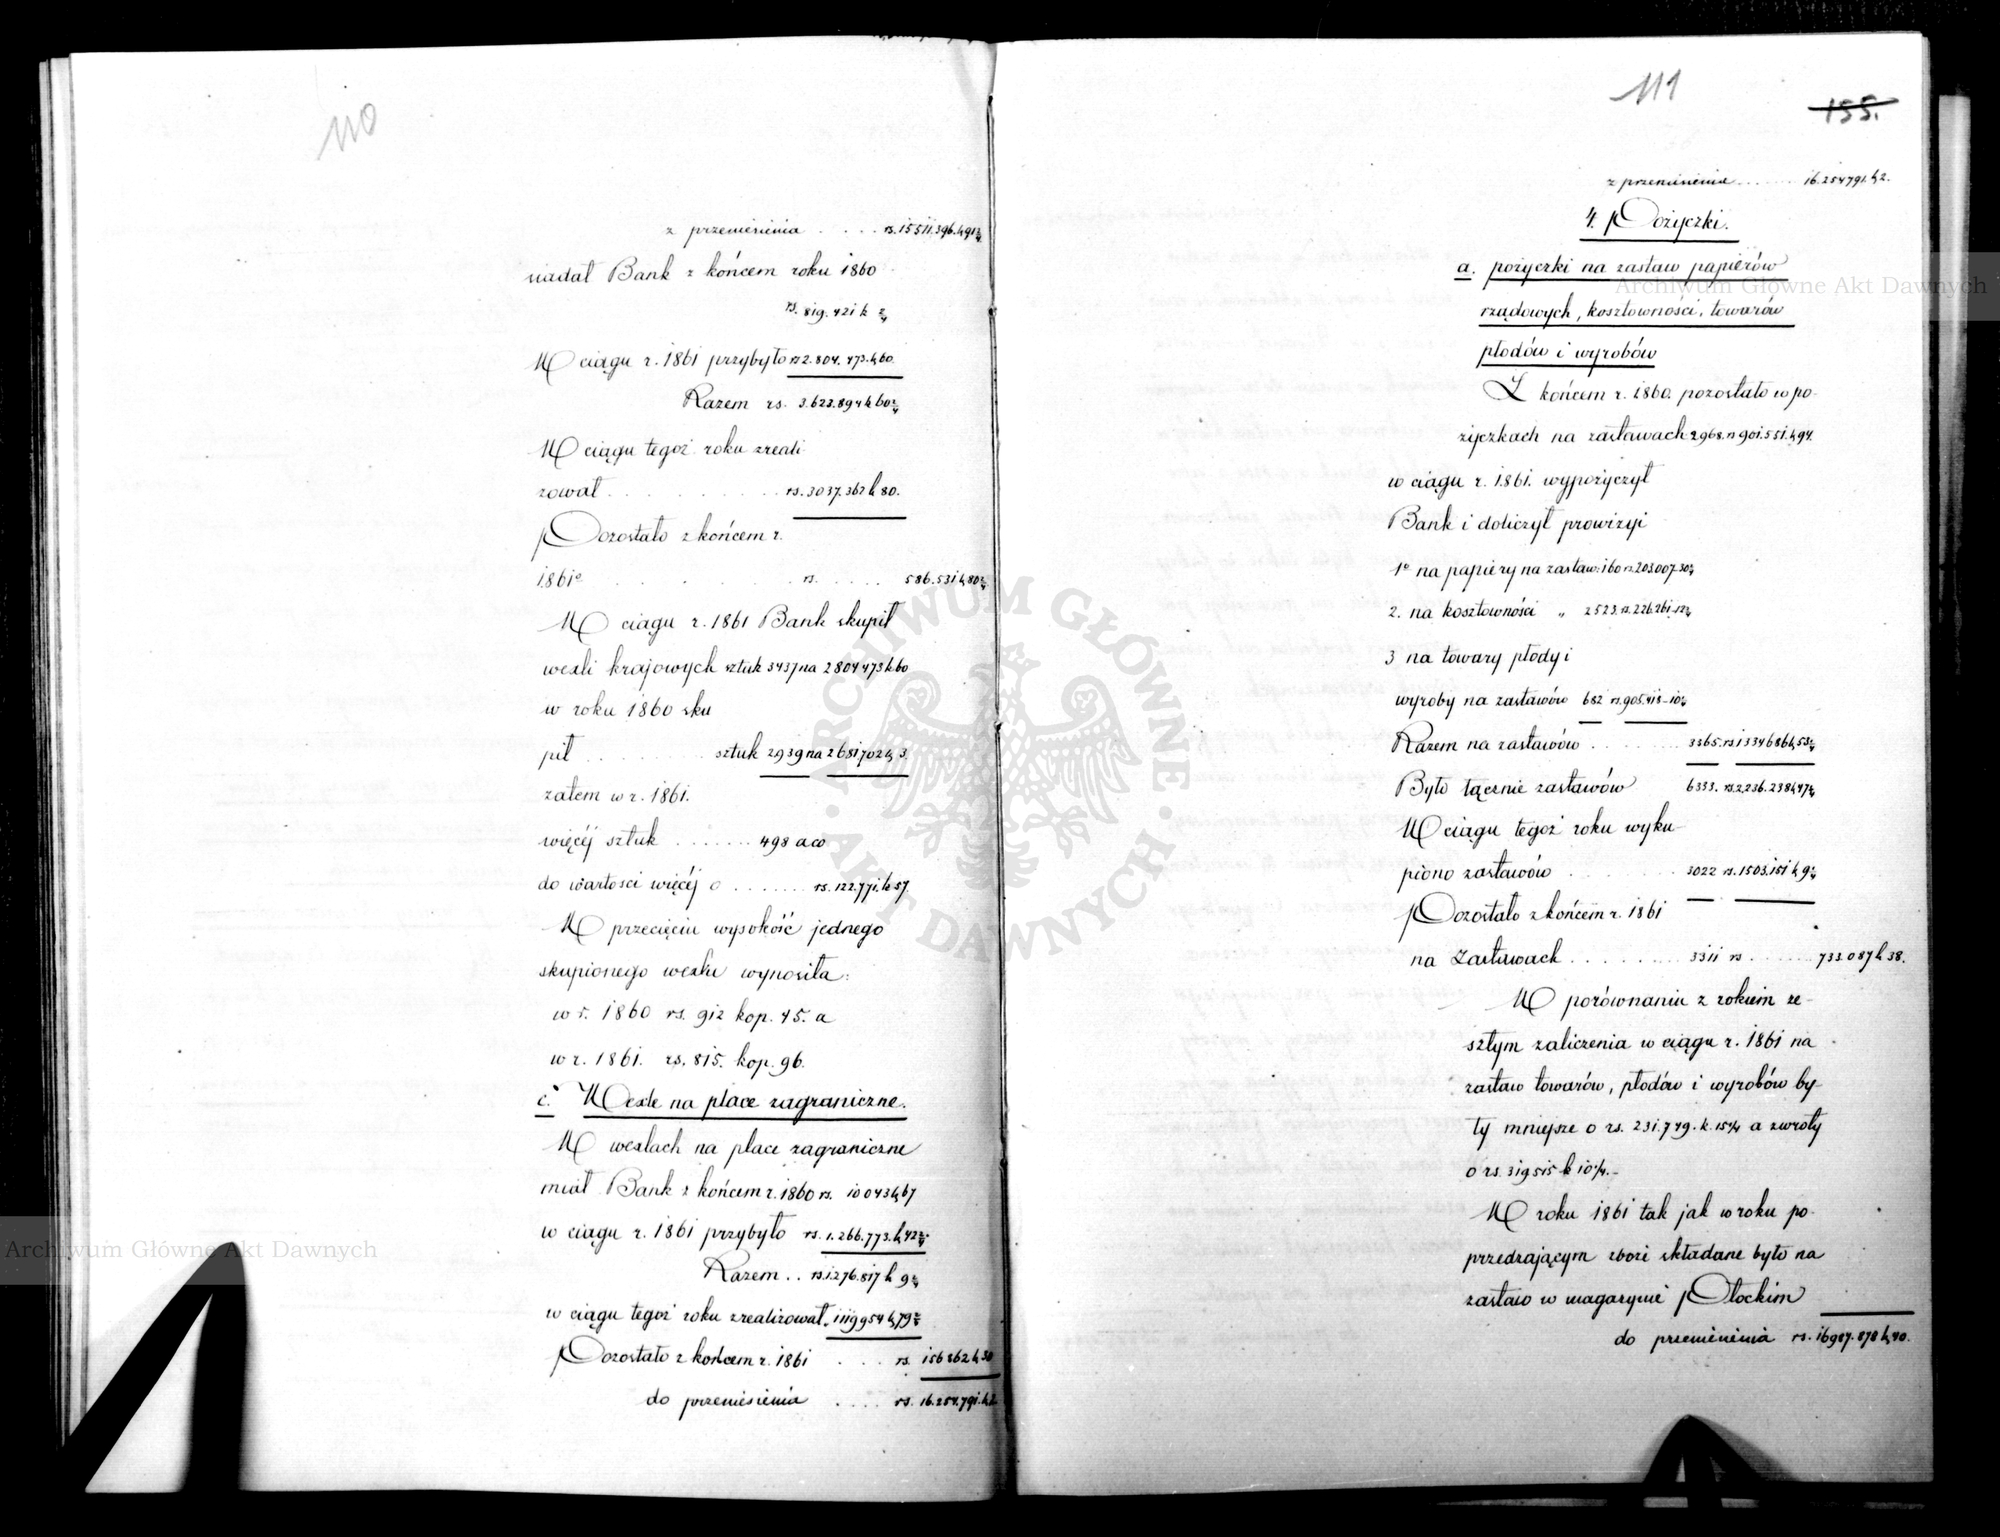 110
z przeniesienia . . . . rs. 15511.396.k.91 2/4
siadał Bank z końcem roku 1860
rs. 819.421 k 2/4
W ciągu r. 1861 przybyło rs 2.804.473.k.60.
Razem rs. 3.623.894 k 60 2/4
W ciągu tegoż roku zreali
zował . . . . . . . . rs. 3037.362 k 80.
Pozostało z końcem r.
1861o . . . . . . rs. . . . . . 586.531 k. 80 2/4
W ciągu r. 1861 Bank skupił
wexli krajowych sztuk 3437 na 2804473 k 60
w roku 1860 sku
pił . . . . . . . sztuk 2939 na 2681702 k, 3.
zatem w r. 1861.
więcéj sztuk . . . . . . . 498 a co
do wartości więcéj o . . . . . . . rs. 122.771. k 57.
W przecięciu wysokość jednego
skupionego wexlu wynosiła:
w r. 1860 rs. 912 kop. 45. a
w r. 1861. rs. 815. kop. 96.
c. Wexle na place zagraniczne.
W wexlach na place zagraniczne
miał Bank z końcem r. 1860 rs. 10043 k, 67
w ciągu r. 1861 przybyło rs. 1.266.773. k, 42 2/4
Razem . . rs. 1.276.817 k 9 2/4
w ciągu tegoż roku zrealizował „ 1119954 k, 79 2/4
Pozostało z końcem r. 1861 . . . . rs. 156862 k, 30
do przeniesienia . . . . rs. 16.254.791. k, 2
111
155.
z przeniesienia . . . . . . 16.254791. k, 2.
4. Pożyczki.
a. pożyczki na zastaw papierów
rządowych, kosztowności, towarów
płodów i wyrobów
Z końcem r. 1860. pozostało w po-
życzkach na zastawach 2968. rs 901.551. k, 94.
w ciągu r. 1861. wypożyczył
Bank i doliczył prowizyi
1o na papiery na zastaw: 160 rs. 203.007.30 2/4
2. na kosztowności „ 2523. rs. 226.261.12 2/4
3 na towary płody i
wyroby na zastawów 682 rs. 905.418-10 2/4
Razem na zastawów . . . . . . . . 3365. rs. 1334686 k, 53 2/4
Było łącznie zastawów 6333. rs. 2.236.238 k, 47 2/4
W ciągu tegoż roku wyku-
piono zastawów . . . . . . . . 3022 rs. 1503.151 k, 9 2/4
Pozostało z końcem r. 1861
na Zastawach . . . . . . . . 3311 rs . . . . . . 733.087 k 38.
W porównaniu z rokiem ze-
szłym zaliczenia w ciągu r. 1861 na
zastaw towarów, płodów i wyrobów by-
ły mniejsze o rs. 231.749. k. 15 1/4 a zwroty
o rs. 319515 k 10 1/4.-
W roku 1861 tak jak w roku po-
przedzającym zboże składane było na
zastaw w magazynie Płockim
do przeniesienia rs. 16987.878 k, 40.
Archiwum Główne Akt Dawnych
Archiwum Główne Akt Dawnych
ARCHIWUM GŁÓWNE • AKT DAWNYCH •